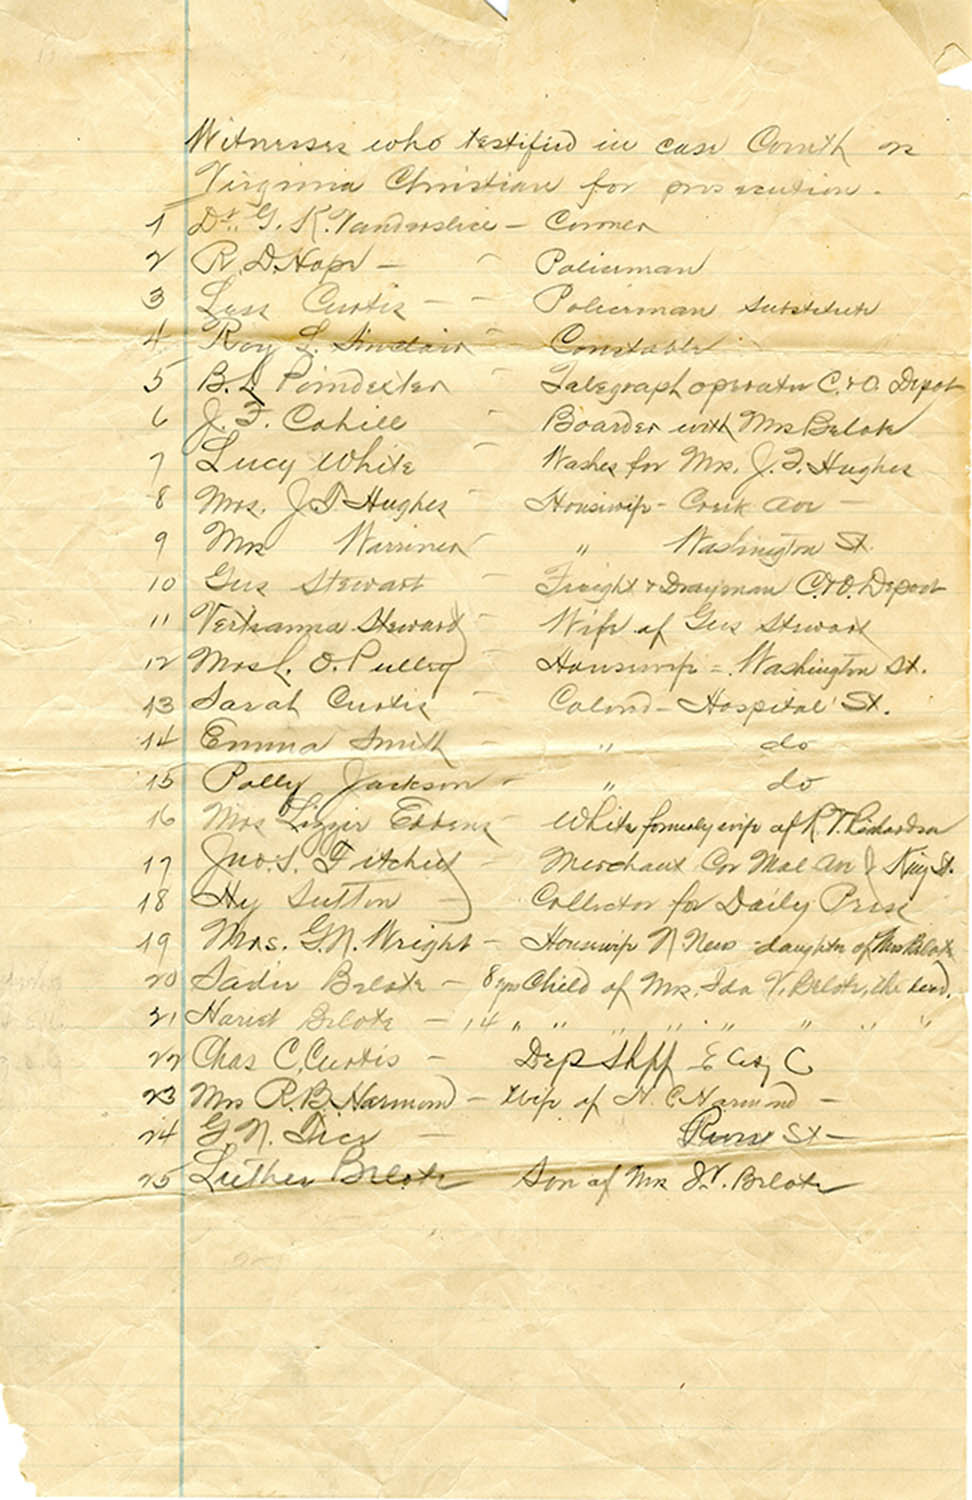 Witnesses who testified in case Comth vs
Virginia Christian for prosecution.
1 Dr. G. K. Vanderslice - Coroner
2 R. D. Hope - - Policeman
3 Less Curtis - - Policeman substitute
4 Roy L. Sinclair - Constable
5 B. L. Poindexter - Telegraph operator C. & O. Depot
6 J. F. Cahill - Boarder with Mrs Belote
7 Lucy White - Washes for Mrs. J. T. Hughes
8 Mrs. J T Hughes - Housewife - Creek Ave -
9 Mrs Warriner - " Washington St.
10 Gus Stewart - Freight & Drayman C. & O. Depoot
11 Vertranna Steward - Wife of Gus Stewart
12 Mrs L. O. Pulley - Housewife - Washington St.
13 Sarah Curtis - Colored - Hospital St.
14 Emma Smith - " do
15 Polly Jackson - " do
16 Mrs Lizzie - White formerly wife of R. T. Richardson
17 Jno. S. Fitchett - Merchant Cor Mal Av & King St.
18 Hy Sutton - Collector for Daily Press
19 Mrs. G. N. Wright - Housewife N News daughter of Mrs Belote
20 Sadie Belote - 8 yrs Child of Mrs. Ida V. Belote, the dead.
21 Hariet Belote - 14 " " " " " " " "
22 Chas C. Curtis - Dep Shff E City C
23 Mrs R. B. Harmond - Wife of H. C Harmond -
24 G. N. Tice - St -
25 Luther Belote Son of Mrs I. V. Belote